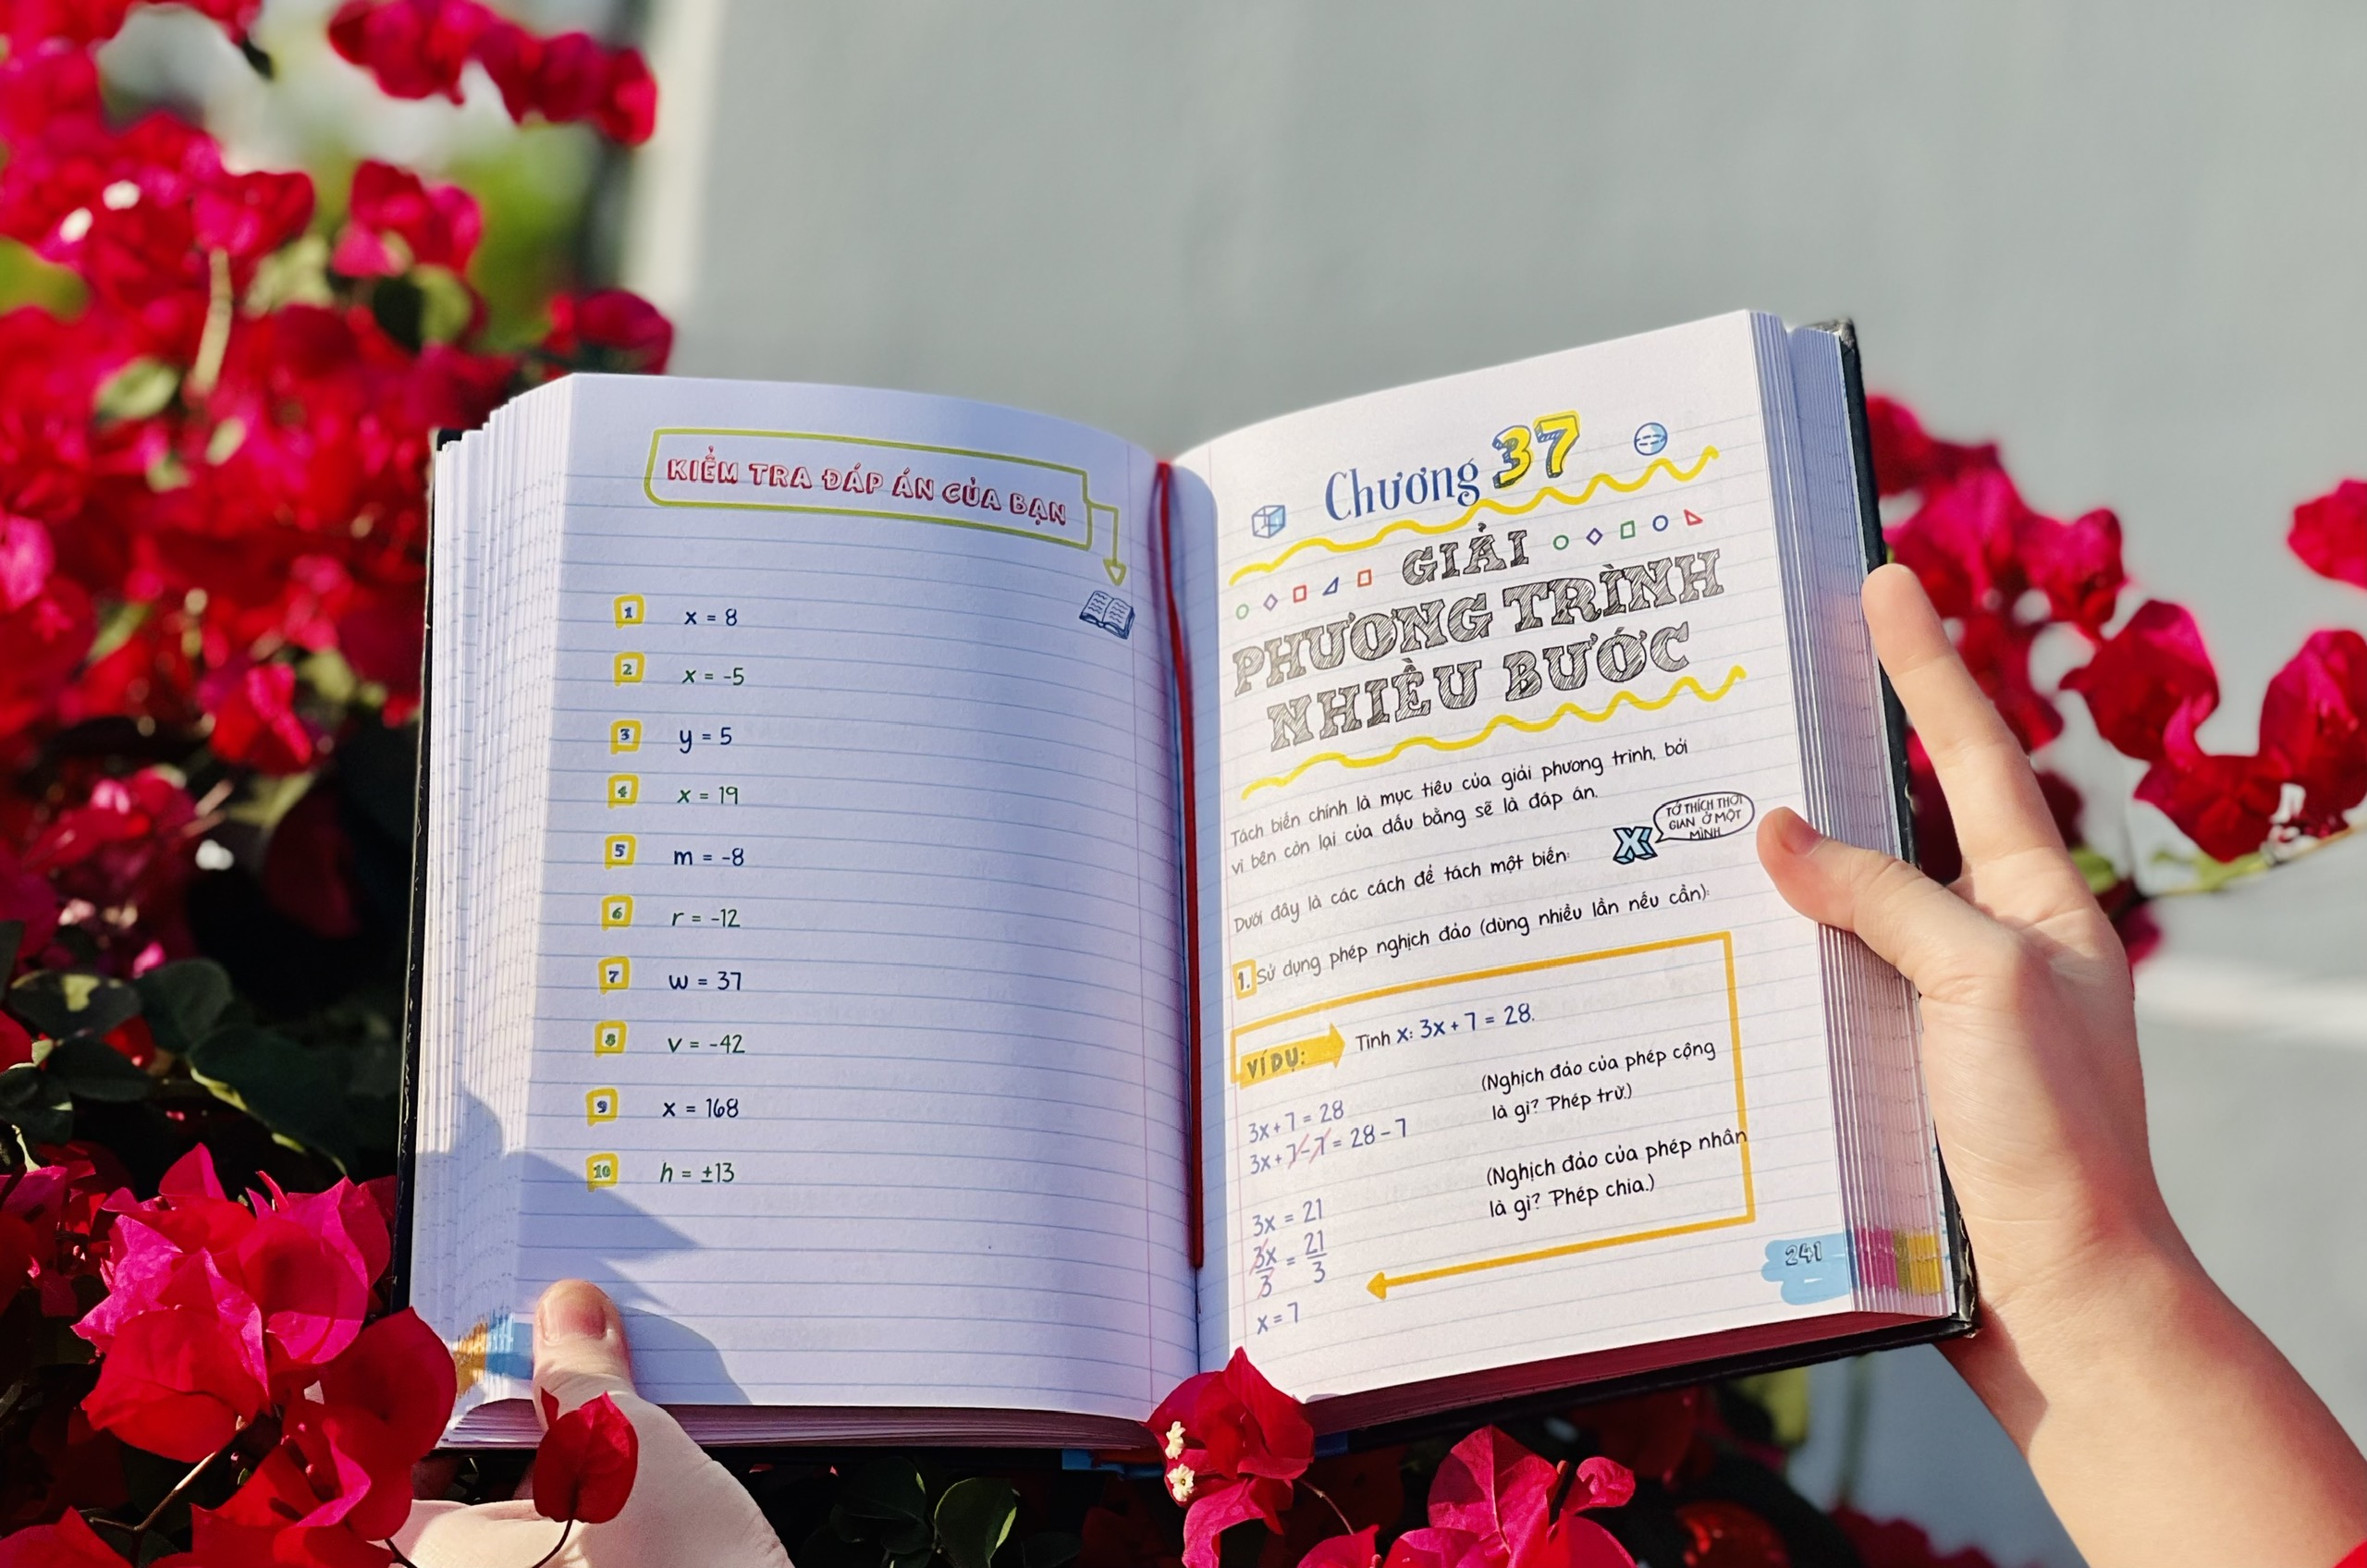 KIỂM TRA ĐÁP ÁN CỦA BẠN
1 x = 8
2 x = -5
3 y = 5
4 x = 19
5 m = -8
6 r = -12
7 w = 37
8 v = -42
9 x = 168
10 h = ±13
Chương 37
GIẢI
PHƯƠNG TRÌNH
NHIỀU BƯỚC
Tách biến chính là mục tiêu của giải phương trình, bởi
vì bên còn lại của dấu bằng sẽ là đáp án.
X
TỚ THÍCH THỜI
GIAN Ở MỘT
MÌNH
Dưới đây là các cách để tách một biến:
1. Sử dụng phép nghịch đảo (dùng nhiều lần nếu cần):
VÍ DỤ: Tính x: 3x + 7 = 28.
3x + 7 = 28
(Nghịch đảo của phép cộng
là gì? Phép trừ.)
3x + 7 - 7 = 28 - 7
3x = 21
(Nghịch đảo của phép nhân
là gì? Phép chia.)
3x/3 = 21/3
x = 7
241